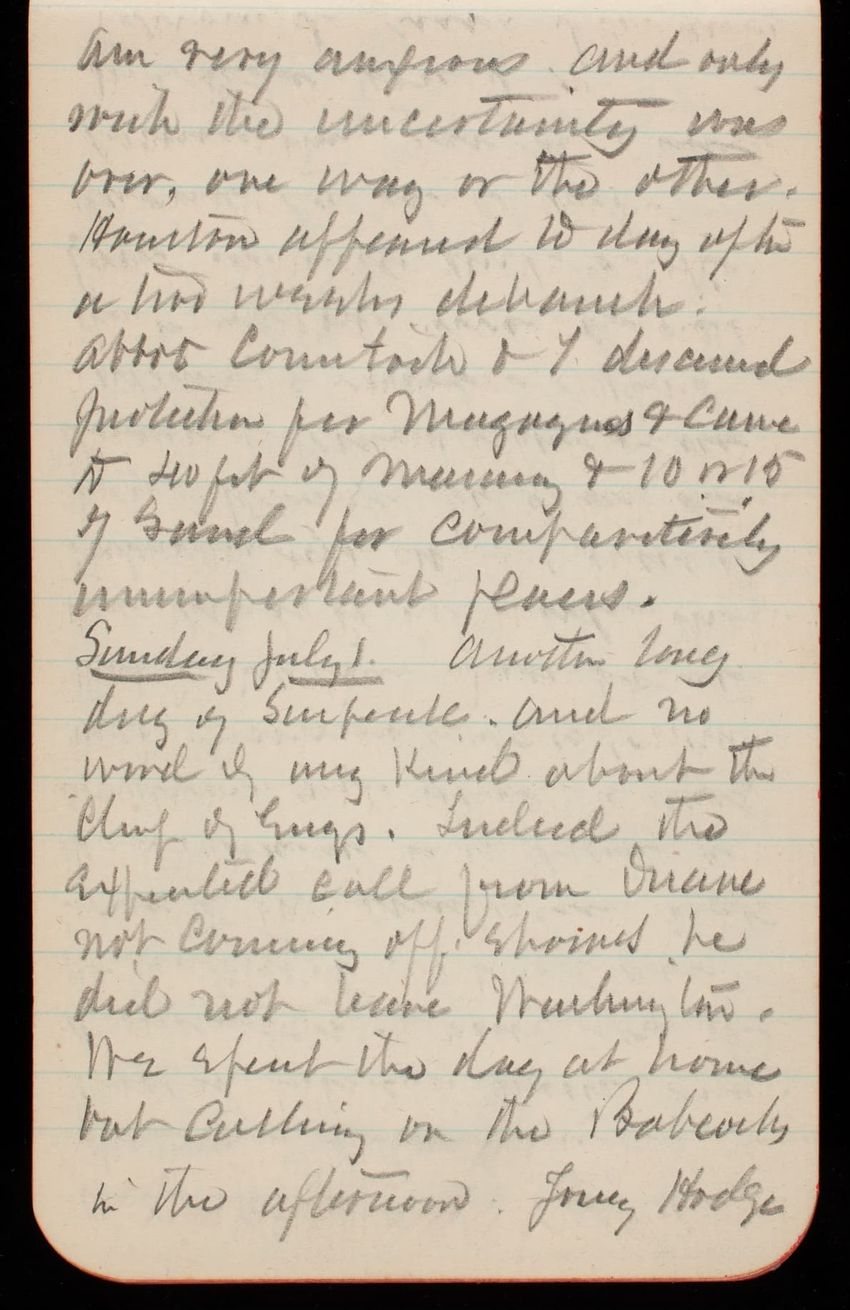 am very anxious. and only
wish the uncertainty was
over, one way or the other.
Houston appeared to day after
a two weeks debauch.
Abbot Comstock & I discussed
protection for Magazines & came
to 40 feet of Masonry & 10 or 15
of Sand for comparatively
unimportant places.
Sunday July 1. Another long
day of Suspense. and no
word of any kind about the
Chief of Engs. Indeed the
expected call from Duane
not coming off. shows he
did not leave Washington.
We spent the day at home
but calling on the Babcocks
in the afternoon. Hodge